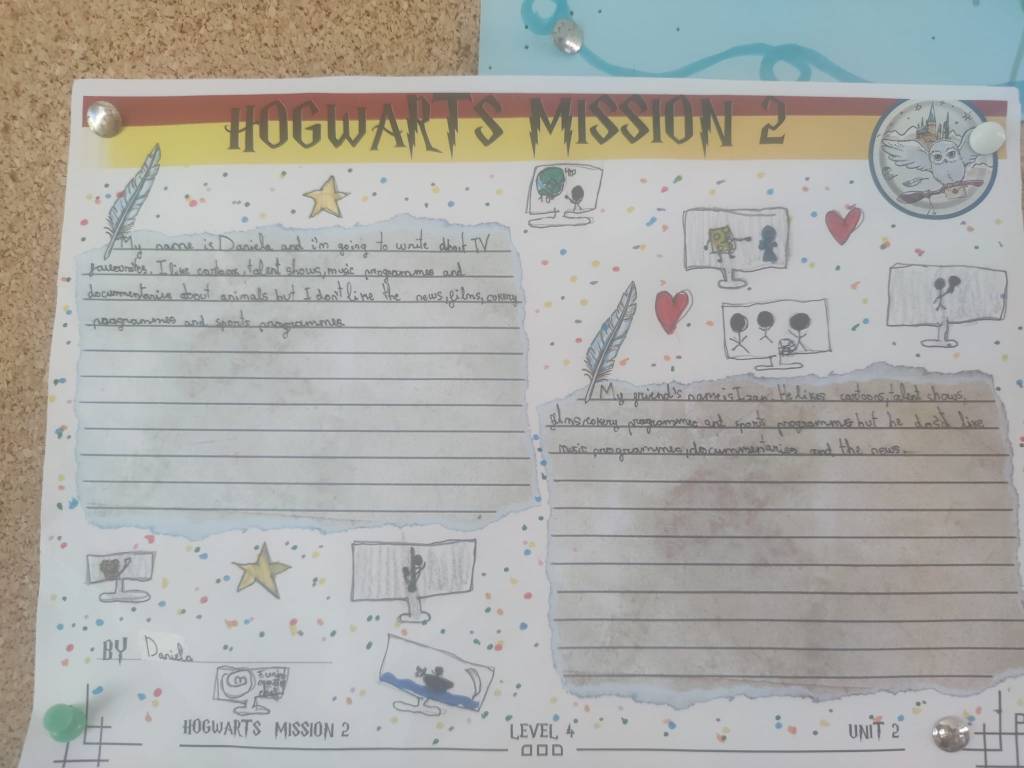 HOGWARTS MISSION 2
My name is Daniela and i'm going to write about TV
favourites. I like cartoon, talent shows, music programmes and
docummentaries about animals but I don't like the news, films, cokery
programmes and sports programmes
My friend's name is Izan. He likes cartoons, talent shows,
films, cokery programmes and sports programmes but he dosn't like
music programmes, docummentaries and the news.
BY Daniela
HOGWARTS MISSION 2
LEVEL 4
UNIT 2